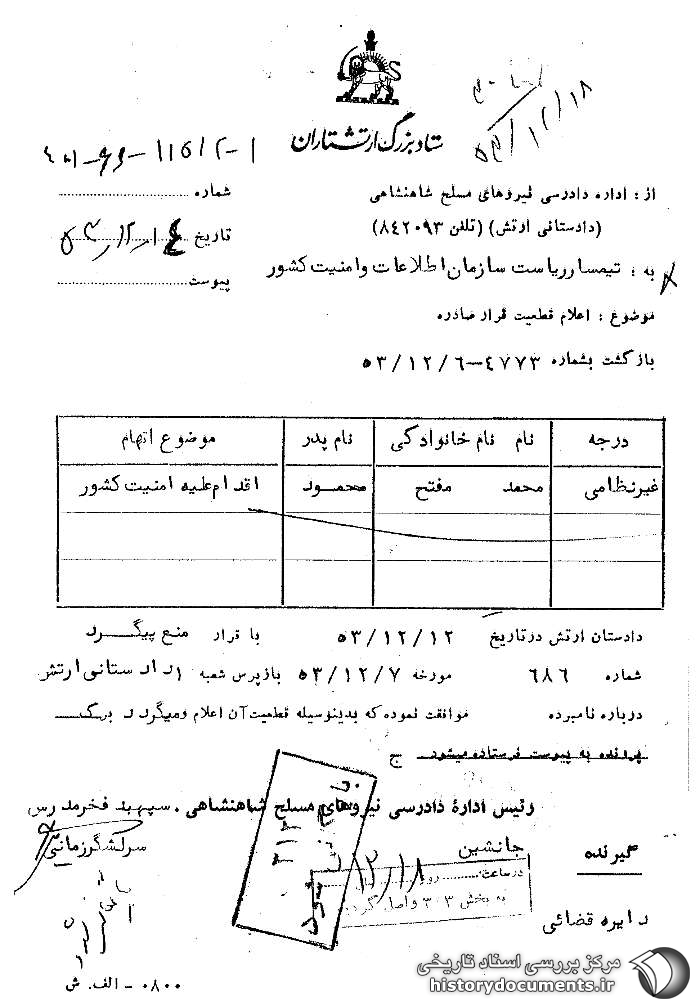 ستاد بزرگ ارتشتاران
۵۳/۱۲/۱۸
از : اداره دادرسی نیروهای مسلح شاهنشاهی
(دادستانی ارتش) (تلفن ۸۴۲۰۹۳)
شماره
تاریخ ۵۳/۱۲/۱۴
پیوست
به : تیمسار ریاست سازمان اطلاعات و امنیت کشور
موضوع : اعلام قطعیت قرار صادره
بازگشت بشماره ۴۷۷۳-۵۳/۱۲/۶
درجه نام نام خانوادگی نام پدر موضوع اتهام
غیرنظامی محمد مفتح محمود اقدام علیه امنیت کشور
دادستان ارتش در تاریخ ۵۳/۱۲/۱۲ با قرار منع پیگرد
شماره ۶۸۶ مورخه ۵۳/۱۲/۷ بازپرس شعبه ۱ دادستانی ارتش
درباره نامبرده موافقت نموده که بدینوسیله قطعیت آن اعلام ومیگردد
پرونده به پیوست فرستاده میشود ج
رئیس ادارهٔ دادرسی نیروهای مسلح شاهنشاهی . سپهبد فخر مدرس
جانشین سرلشگر زمانی
گیرنده
دایره قضائی
۳۱۲
۱۲/۱۸
در ساعت روز
به بخش ۳۰۳ واصل گردید
۰۸۰۰ - الف. ش
مرکز بررسی اسناد تاریخی
historydocuments.ir